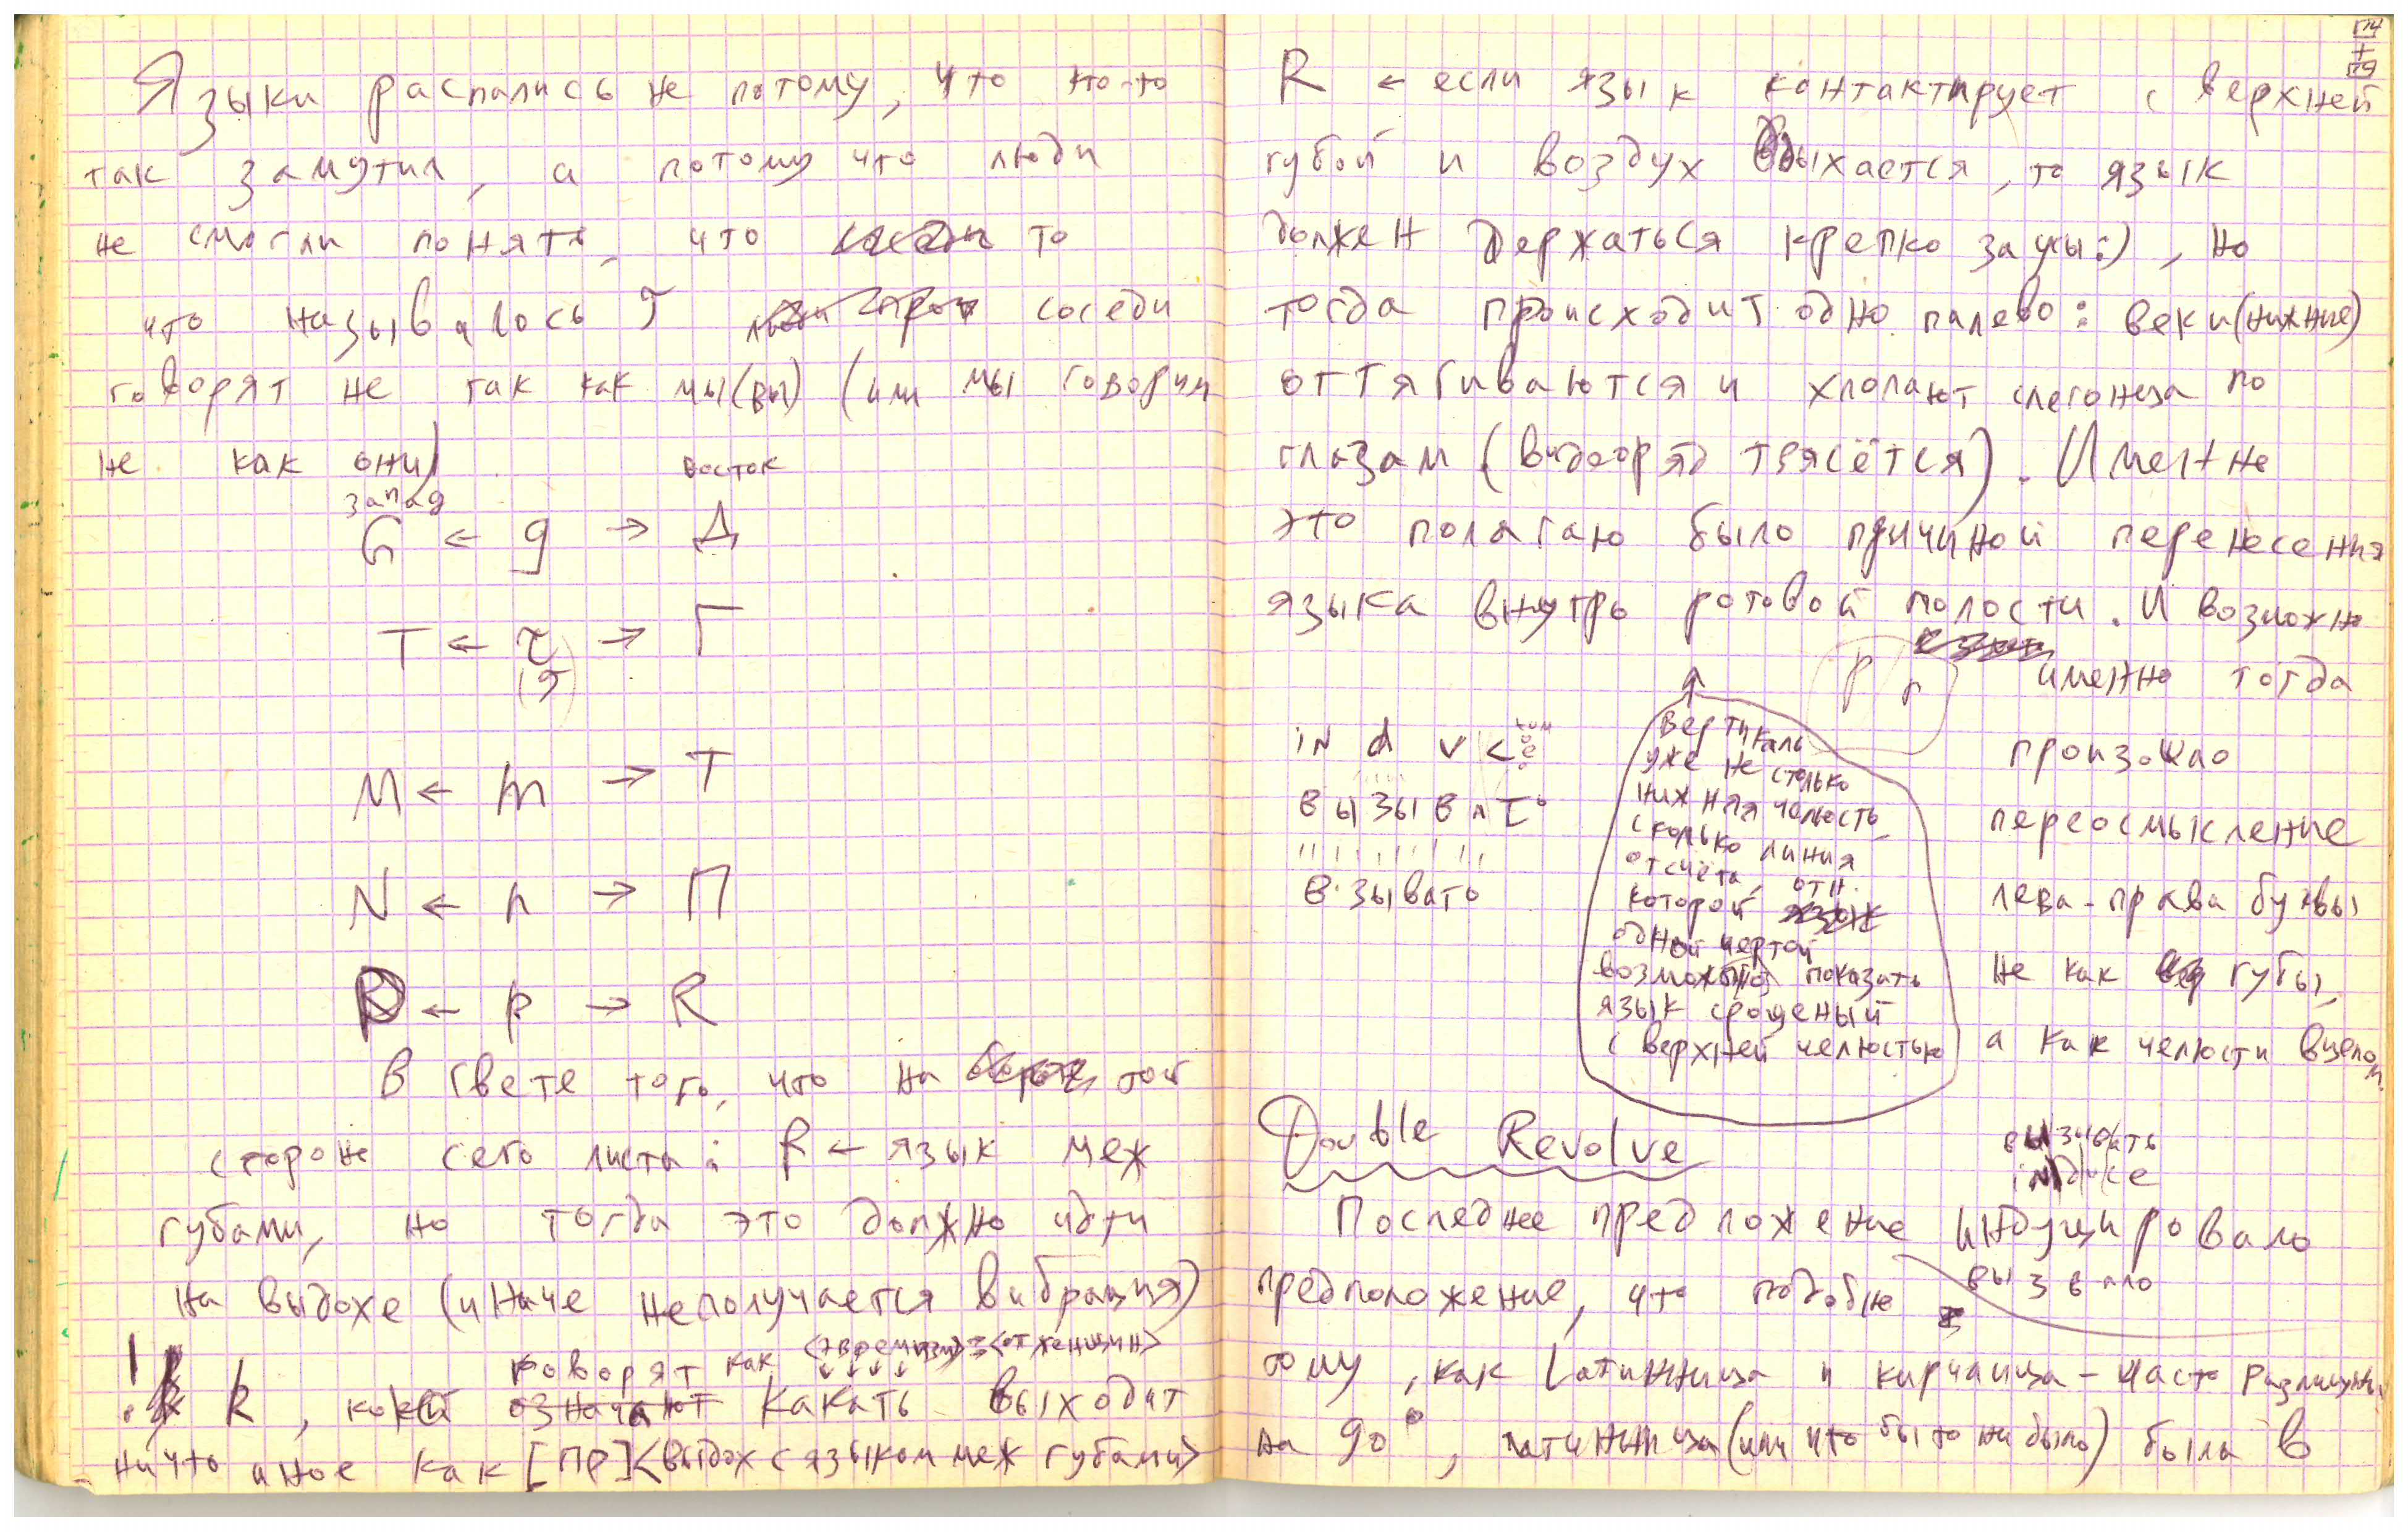 Языки распались не потому, что кто-то
так замутил, а потому что люди
не смогли понять, что то
что называлось т соседи
говорят не так как мы(вы) (или мы говорим
не как они)
запад восток
G ← g → Д
T ← τ → Г
(т)
M ← m → T
N ← n → П
R ← р → R
В свете того, что на той
стороне сего листа: R ← язык меж
губами, но тогда это должно идти
на выдохе (иначе неполучается вибрация)
говорят как <эвфемизм>=<от женщин>
! k, коей означают какать выходит
ничто иное как [ПР]<выдох с языком меж губами>
R ← если язык контактирует с верхней
губой и воздух вдыхается, то язык
должен держаться крепко зауы:), но
тогда происходит одно палево: веки(нижние)
оттягиваются и хлопают слегонца по
глазам (видеоряд трясётся). Именно
это полагаю было причиной перенесения
языка внутрь ротовой полости. И возможно
р г именно тогда
произошло
переосмысление
лева-права буквы
не как губы,
а как челюсти вцелом.
in d v <
вызывать
в·зывать
↑
вертикаль
уже не столько
нижняя челюсть
сколько линия
отсчёта, отн.
которой
одной чертой
возможно показать
язык сращеный
с верхней челюстью
Double Revolve
вызывать
induce
Последнее предложение индуцировало
вызвало
предположение, что подобно
тому, как латинница и кирчаица - часто различны
на 90°, латинница (или что бы то ни было) была в